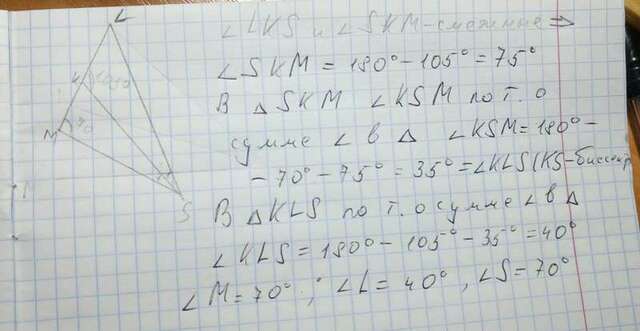 L
K 105°
M 70
S
∠LKS и ∠SKM - смежные ⇒
∠SKM = 180° - 105° = 75°
В △SKM ∠KSM по т. о
сумме ∠ в △ ∠KSM = 180° -
- 70° - 75° = 35° = ∠KLS (KS - биссектр
В △KLS по т. о сумме ∠ в △
∠KLS = 180° - 105° - 35° = 40°
∠M = 70° ; ∠L = 40° , ∠S = 70°